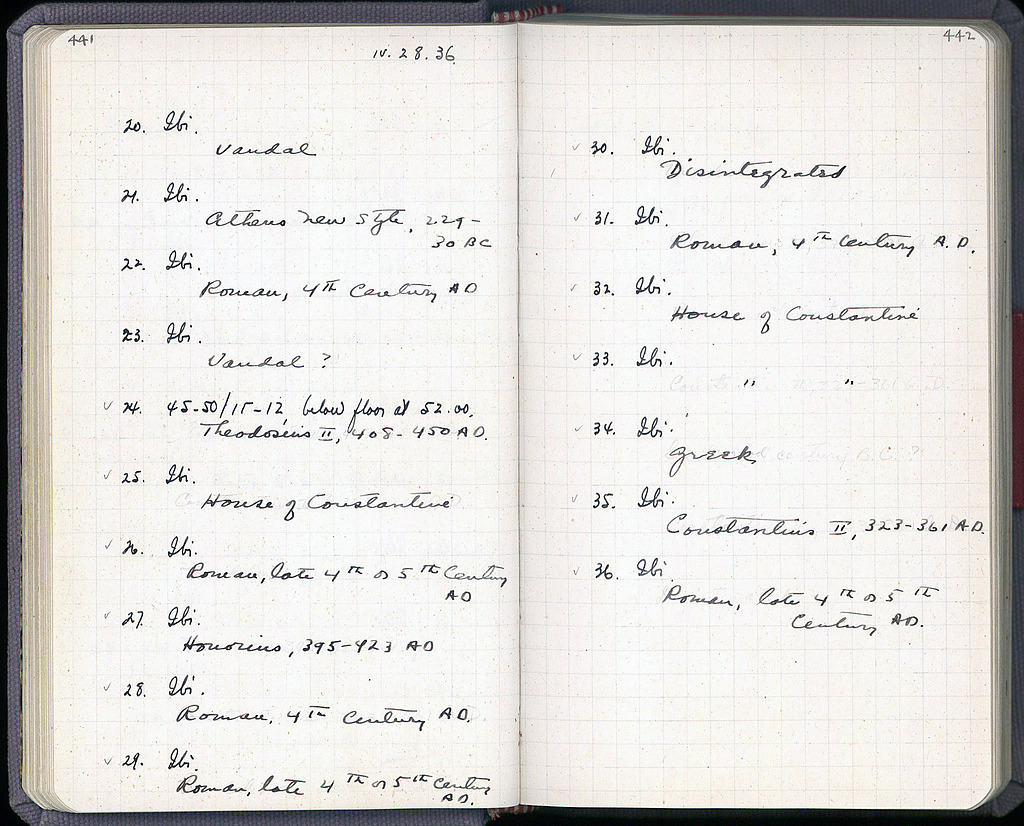 441
IV. 28. 36.
20. Ibi.
Vandal
21. Ibi.
Athens New Style, 229-
30 BC
22. Ibi.
Roman, 4TH Century AD
23. Ibi.
Vandal ?
✓ 24. 45-50/15-12 below floor at 52.00.
Theodosius II, 408-450 AD.
✓ 25. Ibi.
House of Constantine
✓ 26. Ibi.
Roman, late 4TH or 5TH Century
AD
✓ 27. Ibi.
Honorius, 395-423 AD
✓ 28. Ibi.
Roman, 4TH Century AD.
✓ 29. Ibi.
Roman, late 4TH or 5TH Century
AD.
442
✓ 30. Ibi.
Disintegrated
✓ 31. Ibi.
Roman, 4TH Century A.D.
✓ 32. Ibi.
House of Constantine
✓ 33. Ibi.
" "
✓ 34. Ibi.
Greek
✓ 35. Ibi.
Constantius II, 323-361 AD.
✓ 36. Ibi.
Roman, late 4TH or 5TH
Century AD.